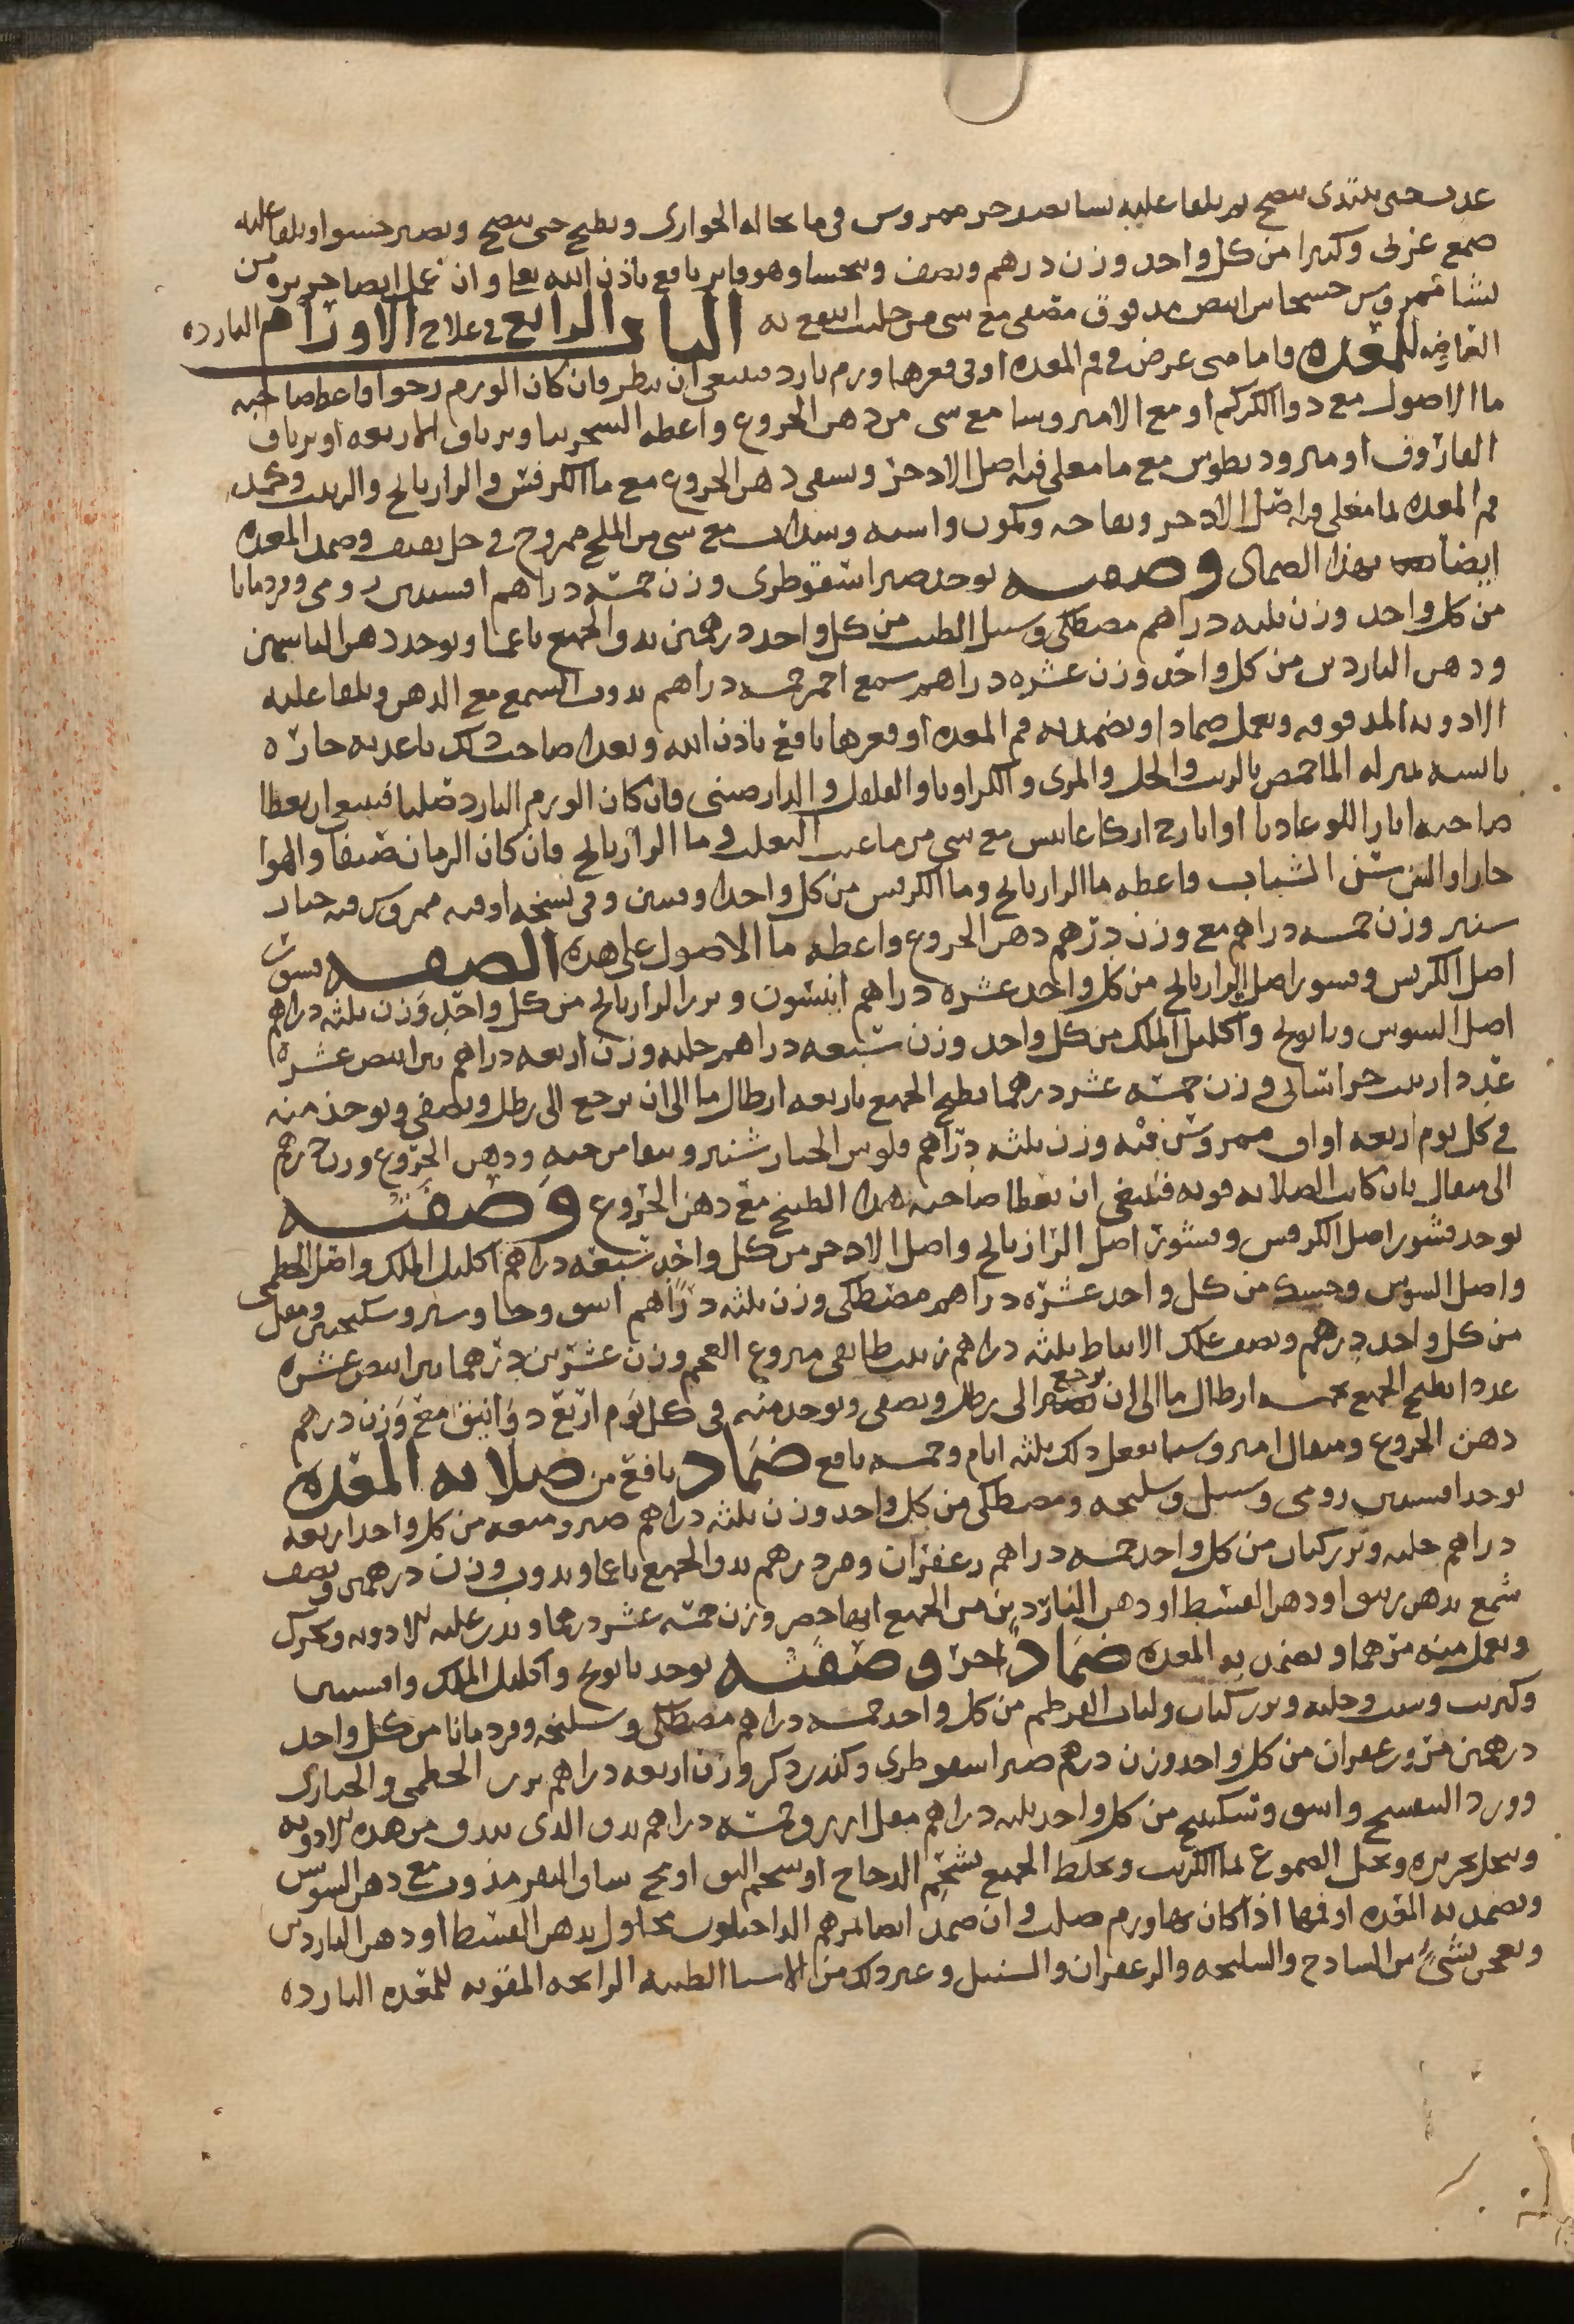 عدب حتى يبتدى ينضج ثم يلقا عليه نسا بعد حر ممروس فى ما نخاله الحوارى ويطبخ حتى ينضج ويصير حسوا ويلقا عليه
صمغ عربى وكثيرا من كل واحد وزن درهم ونصف ويتحسا وهو فاتر نافع باذن الله تعا وان عمل ايضا حريره من
نشا ممروس خشخاش ابيض مدقوق مصفى مع شى من حليب انتفع به الباب الرابع فى علاج الاورام البارده
العارضه للمعده واما متى عرض فى فم المعده او فى قعرها ورم بارد فينبغى ان ينظر فان كان الورم رخوا فاعط صاحبه
ما الاصول مع دوا الكركم او مع الامروسيا مع شى من دهن الخروع واعطه السجزنيا وترياق الاربعه او ترياق
الفاروق او مثروديطوس مع ما مغلى فيه اصل الاذخر ويسقى دهن الخروع مع ما الكرفس والرازيانج والزيت وكمد
فم المعده بما مغلى فيه اصل الاذخر وتفاحه وكمون واشنه وسداب مع شى من الملح ممزوج فى خل ثقيف وضمد المعده
ايضا بهذا الضماد وصفته يوخذ صبر اسقوطرى وزن خمسه دراهم افسنتين رومى وقردمانا
من كل واحد وزن ثلثه دراهم مصطكى وسنبل الطيب من كل واحد درهمين يدق الجميع ناعما ويوخذ دهن الياسمين
ودهن الناردين من كل واحد وزن عشره دراهم شمع احمر خمسه دراهم يذوب الشمع مع الدهن ويلقا عليه
الادويه المدقوقه ويعمل ضمادا ويضمد به فم المعده او قعرها نافع باذن الله ويغذا صاحب ذلك باغذيه حاره
يابسه بمنزله الماحمص بالزيت والخل والمرى والكراويا والفلفل والدارصينى فان كان الورم البارد صلبا فينبغى ان يعطا
صاحبه ايارا اللوغاديا او ايارج اركاغانيس مع شى من ما عنب الثعلب وما الرازيانج فان كان الزمان صيفا والهوا
حارا والسن سن الشباب فاعطه ما الرازيانج وما الكرفس من كل واحد اوقيتين وفى نسخه اوقيه ممروس فيه خيار
شنبر وزن خمسه دراهم مع وزن درهم دهن الخروع واعطه ما الاصول على هذه الصفه قشور
اصل الكرفس وقشور اصل الرازيانج من كل واحد عشره دراهم انيسون وبزر الرازيانج من كل واحد وزن ثلثه دراهم
اصل السوس وبابونج واكليل الملك من كل واحد وزن سبعه دراهم حلبه وزن اربعه دراهم تين ابيض عشره
عددا زبيب خراسانى وزن خمسه عشر درهما يطبخ الجميع باربعه ارطال ما الى ان يرجع الى رطل ويصفى ويوخذ منه
فى كل يوم اربعه اواق ممروس فيه وزن ثلثه دراهم فلوس الخيار شنبر ودهن الخروع وزن درهم
الى مثقال فان كانت الصلابه قويه فينبغى ان يعطا صاحبه هذا الطبيخ مع دهن الخروع وصفته
يوخذ قشور اصل الكرفس وقشور اصل الرازيانج واصل الاذخر من كل واحد سبعه دراهم اكليل الملك واصل الخطمى
واصل السوس وحسك من كل واحد عشره دراهم مصطكى وزن ثلثه دراهم اشق وجاوشير وسكبينج ومقل
من كل واحد درهم ونصف علك الانباط ثلثه دراهم زبيب طايفى منزوع العجم وزن عشرين درهما تين ابيض عشره
عددا يطبخ الجميع بخمسه ارطال ما الى ان يرجع الى رطل ويصفى ويوخذ منه فى كل يوم اربع دوانيق مع وزن درهم
دهن الخروع ومثقال امروسيا يفعل ذلك ثلثه ايام وخمسه نافع ضماد نافع من صلابه المعده
يوخذ افسنتين رومى وسنبل وسليخه ومصطكى من كل واحد وزن ثلثه دراهم صبر وميعه من كل واحد اربعه
دراهم حلبه وبزر كتان من كل واحد خمسه دراهم زعفران ومر درهم يدق الجميع ناعما ويذوب وزن درهمين ونصف
شمع بدهن زيبق او دهن القسط او دهن الناردين من الجميع ايها حضر وزن خمسه عشر درهما ويذر عليه الادويه ويحرك
ويعمل منه مرهما ويضمد به المعده ضماد اخر وصفته يوخذ بابونج واكليل الملك وافسنتين
وكرنب وشبت وحلبه وبزر كتان ولباب القرطم من كل واحد خمسه دراهم مصطكى وسليخه وقردمانا من كل واحد
درهمين مر وزعفران من كل واحد وزن درهم صبر اسقوطرى وكندر ذكر وزن اربعه دراهم بزر الخطمى والخبازى
وورد البنفسج واشق وسكبينج من كل واحد ثلثه دراهم مقل ازرق خمسه دراهم يدق الذى يندق من هذه الادويه
وينخل بحريره ويحل الصموغ بما الكرنب ويخلط الجميع بشحم الدجاج او شحم البط او مخ ساق البقر مذوب مع دهن السوسن
ويضمد به المعده او فمها اذا كان بها ورم صلب وان ضمد ايضا بمرهم الداخيلون محلول بدهن القسط او دهن الناردين
ويعجن بشى من السادج والسليخه والزعفران والسنبل وغير ذلك من الاشيا الطيبه الرايحه المقويه للمعده البارده